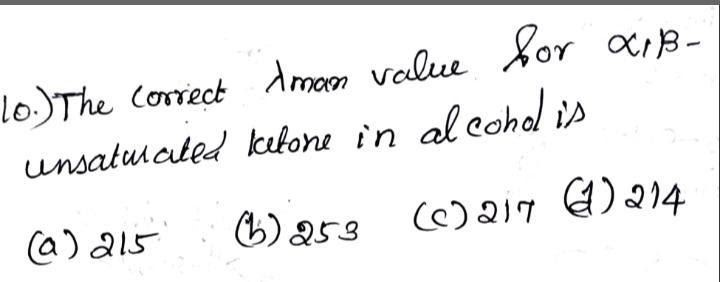 10.) The correct λman value for α,β-
unsaturated ketone in alcohol is
(a) 215 (b) 253 (c) 217 (d) 214